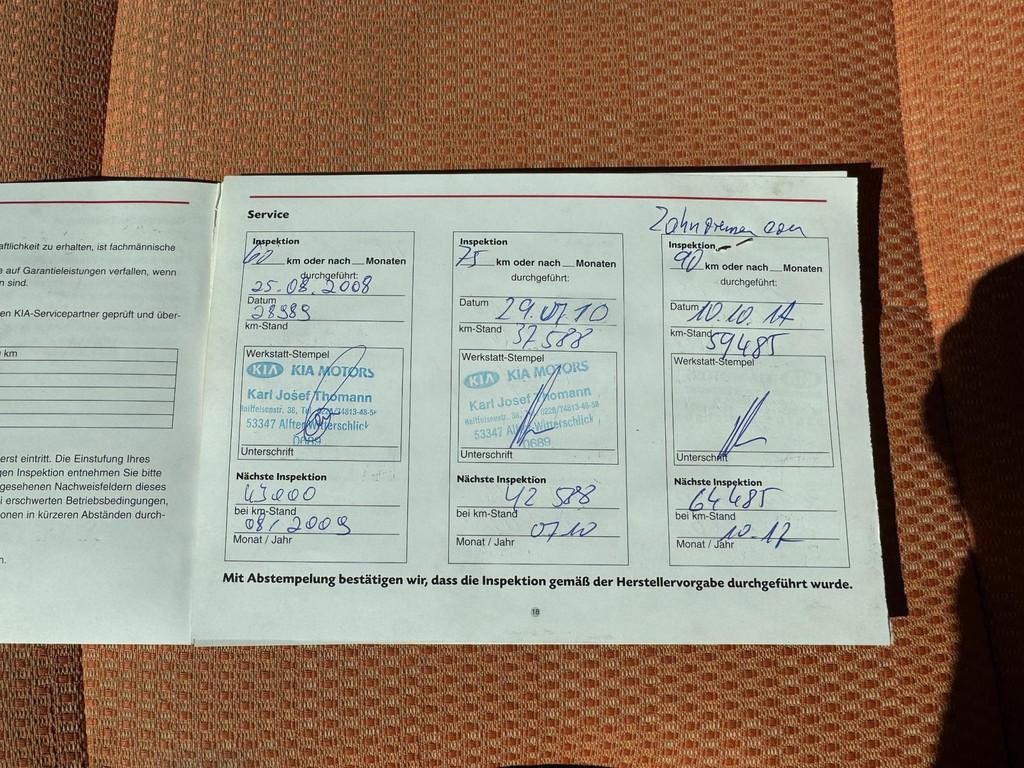 aftlichkeit zu erhalten, ist fachmännische
e auf Garantieleistungen verfallen, wenn
n sind.
en KIA-Servicepartner geprüft und über-
km
erst eintritt. Die Einstufung Ihres
gen Inspektion entnehmen Sie bitte
gesehenen Nachweisfeldern dieses
i erschwerten Betriebsbedingungen,
onen in kürzeren Abständen durch-
n.
Service
Inspektion
60 km oder nach __ Monaten
durchgeführt:
25.08.2008
Datum
28989
km-Stand
Werkstatt-Stempel
KIA KIA MOTORS
Karl Josef Thomann
Raiffeisenstr. 38, Tel. 0228/74813-48-5
53347 Alfter-Witterschlick
0689
Unterschrift
Nächste Inspektion
43000
bei km-Stand
08/2009
Monat / Jahr
Inspektion
75 km oder nach __ Monaten
durchgeführt:
Datum 29.07.10
km-Stand 37588
Werkstatt-Stempel
KIA KIA MOTORS
Karl Josef Thomann
Raiffeisenstr. 38, Tel. 0228/74813-48-58
53347 Alfter-Witterschlick
0689
Unterschrift
Nächste Inspektion
42 588
bei km-Stand
07 10
Monat / Jahr
Zahnriemen
Inspektion
90 km oder nach __ Monaten
durchgeführt:
Datum 10.10.17
km-Stand 59485
Werkstatt-Stempel
Unterschrift
Nächste Inspektion
64485
bei km-Stand
10.17
Monat / Jahr
Mit Abstempelung bestätigen wir, dass die Inspektion gemäß der Herstellervorgabe durchgeführt wurde.
18